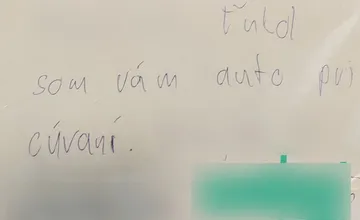 ťukol
som vám auto pri
cúvaní.